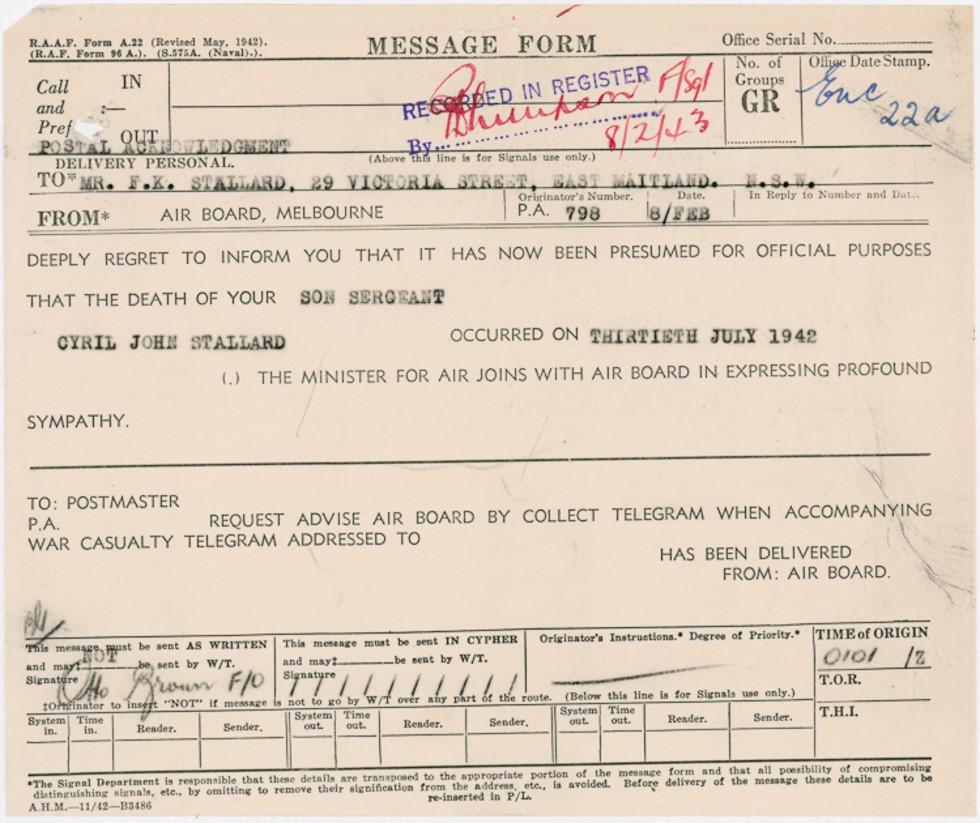 R.A.A.F. Form A.22 (Revised May, 1942).
(R.A.F. Form 96 A.). (S.575A. (Naval).).
MESSAGE FORM
Office Serial No.
Call
and :—
Pref
IN
OUT
RECORDED IN REGISTER
By
F/Sgt
8/2/43
No. of
Groups
GR
Office Date Stamp.
Enc
22a
POSTAL ACKNOWLEDGMENT
DELIVERY PERSONAL.
(Above this line is for Signals use only.)
TO* MR. F.K. STALLARD, 29 VICTORIA STREET, EAST MAITLAND. N.S.W.
FROM* AIR BOARD, MELBOURNE
Originator's Number.
P.A. 798
Date.
8/FEB
In Reply to Number and Date.
DEEPLY REGRET TO INFORM YOU THAT IT HAS NOW BEEN PRESUMED FOR OFFICIAL PURPOSES
THAT THE DEATH OF YOUR SON SERGEANT
CYRIL JOHN STALLARD OCCURRED ON THIRTIETH JULY 1942
(.) THE MINISTER FOR AIR JOINS WITH AIR BOARD IN EXPRESSING PROFOUND
SYMPATHY.
TO: POSTMASTER
P.A. REQUEST ADVISE AIR BOARD BY COLLECT TELEGRAM WHEN ACCOMPANYING
WAR CASUALTY TELEGRAM ADDRESSED TO
HAS BEEN DELIVERED
FROM: AIR BOARD.
This message must be sent AS WRITTEN
and may‡ NOT be sent by W/T.
Signature Otto Brown F/O
This message must be sent IN CYPHER
and may‡ be sent by W/T.
Signature
Originator's Instructions.* Degree of Priority.*
TIME of ORIGIN
0101 /Z
T.O.R.
T.H.I.
‡Originator to insert "NOT" if message is not to go by W/T over any part of the route. (Below this line is for Signals use only.)
System in. Time in. Reader. Sender. System out. Time out. Reader. Sender. System out. Time out. Reader. Sender.
*The Signal Department is responsible that these details are transposed to the appropriate portion of the message form and that all possibility of compromising
distinguishing signals, etc., by omitting to remove their signification from the address, etc., is avoided. Before delivery of the message these details are to be
re-inserted in P/L.
A.H.M.—11/42—B3486